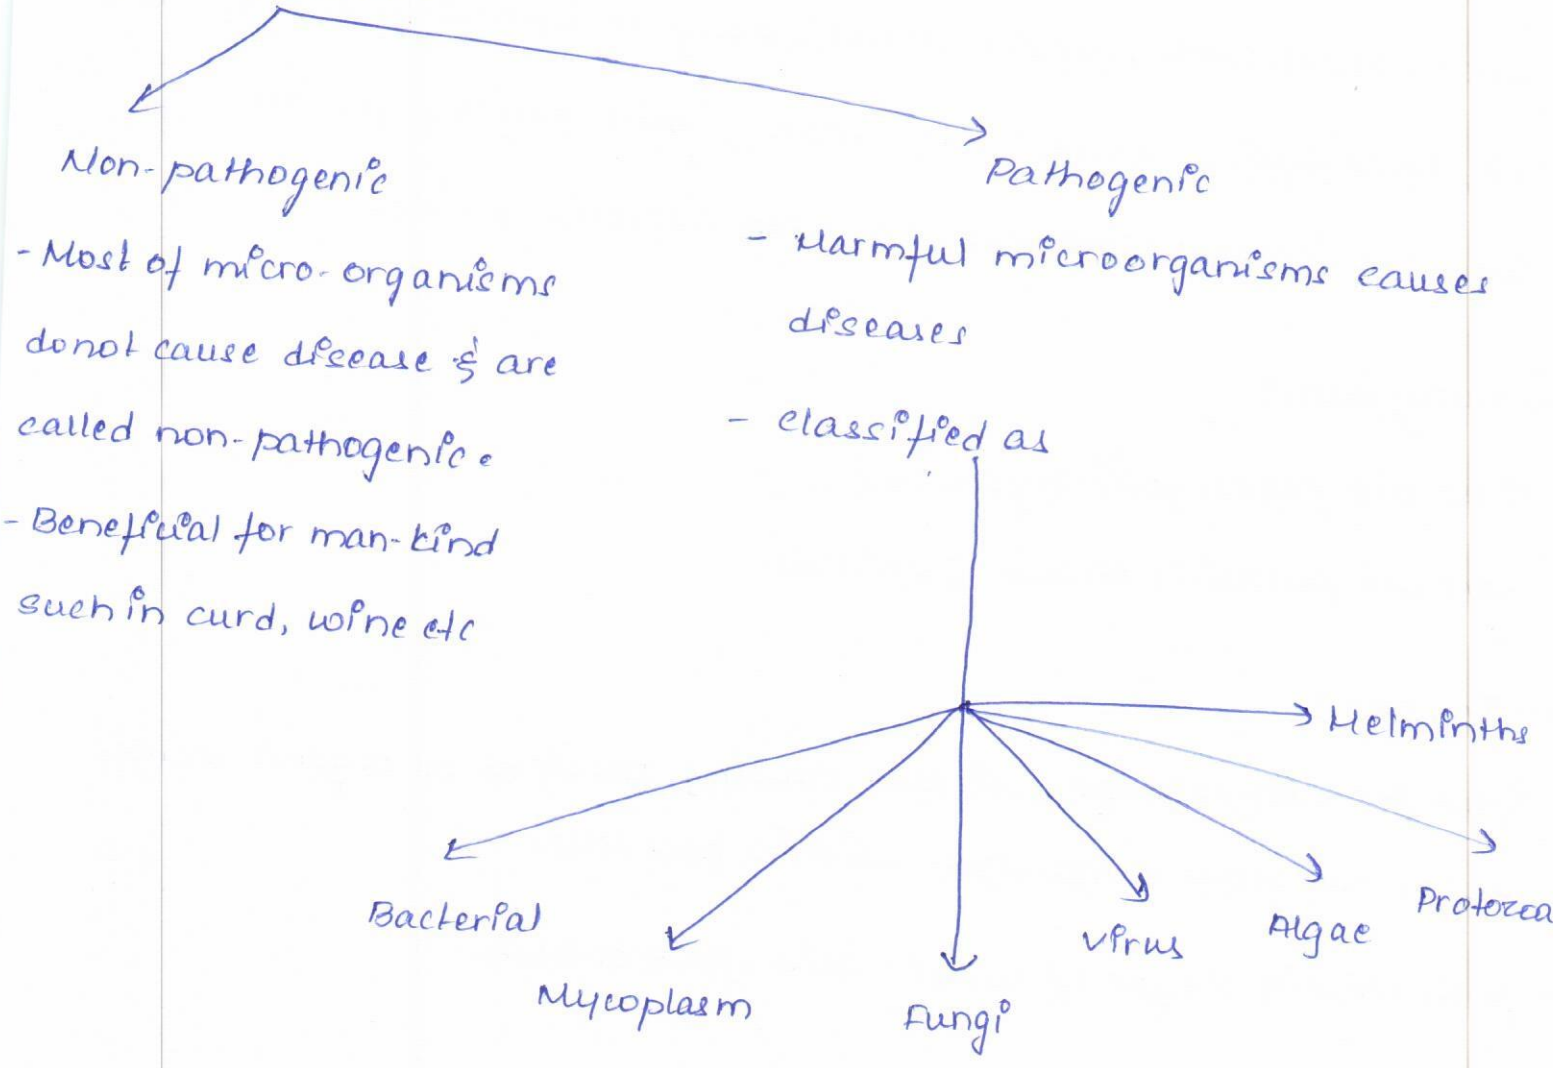 Non-pathogenic
- Most of micro-organisms
donot cause disease & are
called non-pathogenic.
- Beneficial for man-kind
such in curd, wine etc
Pathogenic
- Harmful microorganisms causes
diseases
- classified as
Helminths
Protozoa
Algae
Virus
Fungi
Mycoplasm
Bacterial